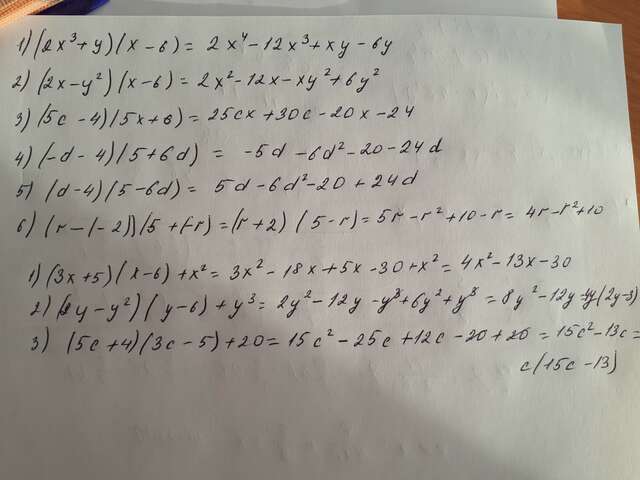 1) (2x³+y)(x-6)= 2x⁴-12x³+xy-6y
2) (2x-y²)(x-6)=2x²-12x-xy²+6y²
3) (5c-4)(5x+6)=25cx+30c-20x-24
4) (-d-4)(5+6d) = -5d-6d²-20-24d
5) (d-4)(5-6d)= 5d-6d²-20+24d
6) (r-(-2))(5+(-r)=(r+2)(5-r)=5r-r²+10-r= 4r-r²+10
1) (3x+5)(x-6)+x²=3x²-18x+5x-30+x²=4x²-13x-30
2) (2y-y²)(y-6)+y³=2y²-12y-y³+6y²+y³=8y²-12y=4y(2y-3)
3) (5c+4)(3c-5)+20=15c²-25c+12c-20+20=15c²-13c=
c(15c-13)